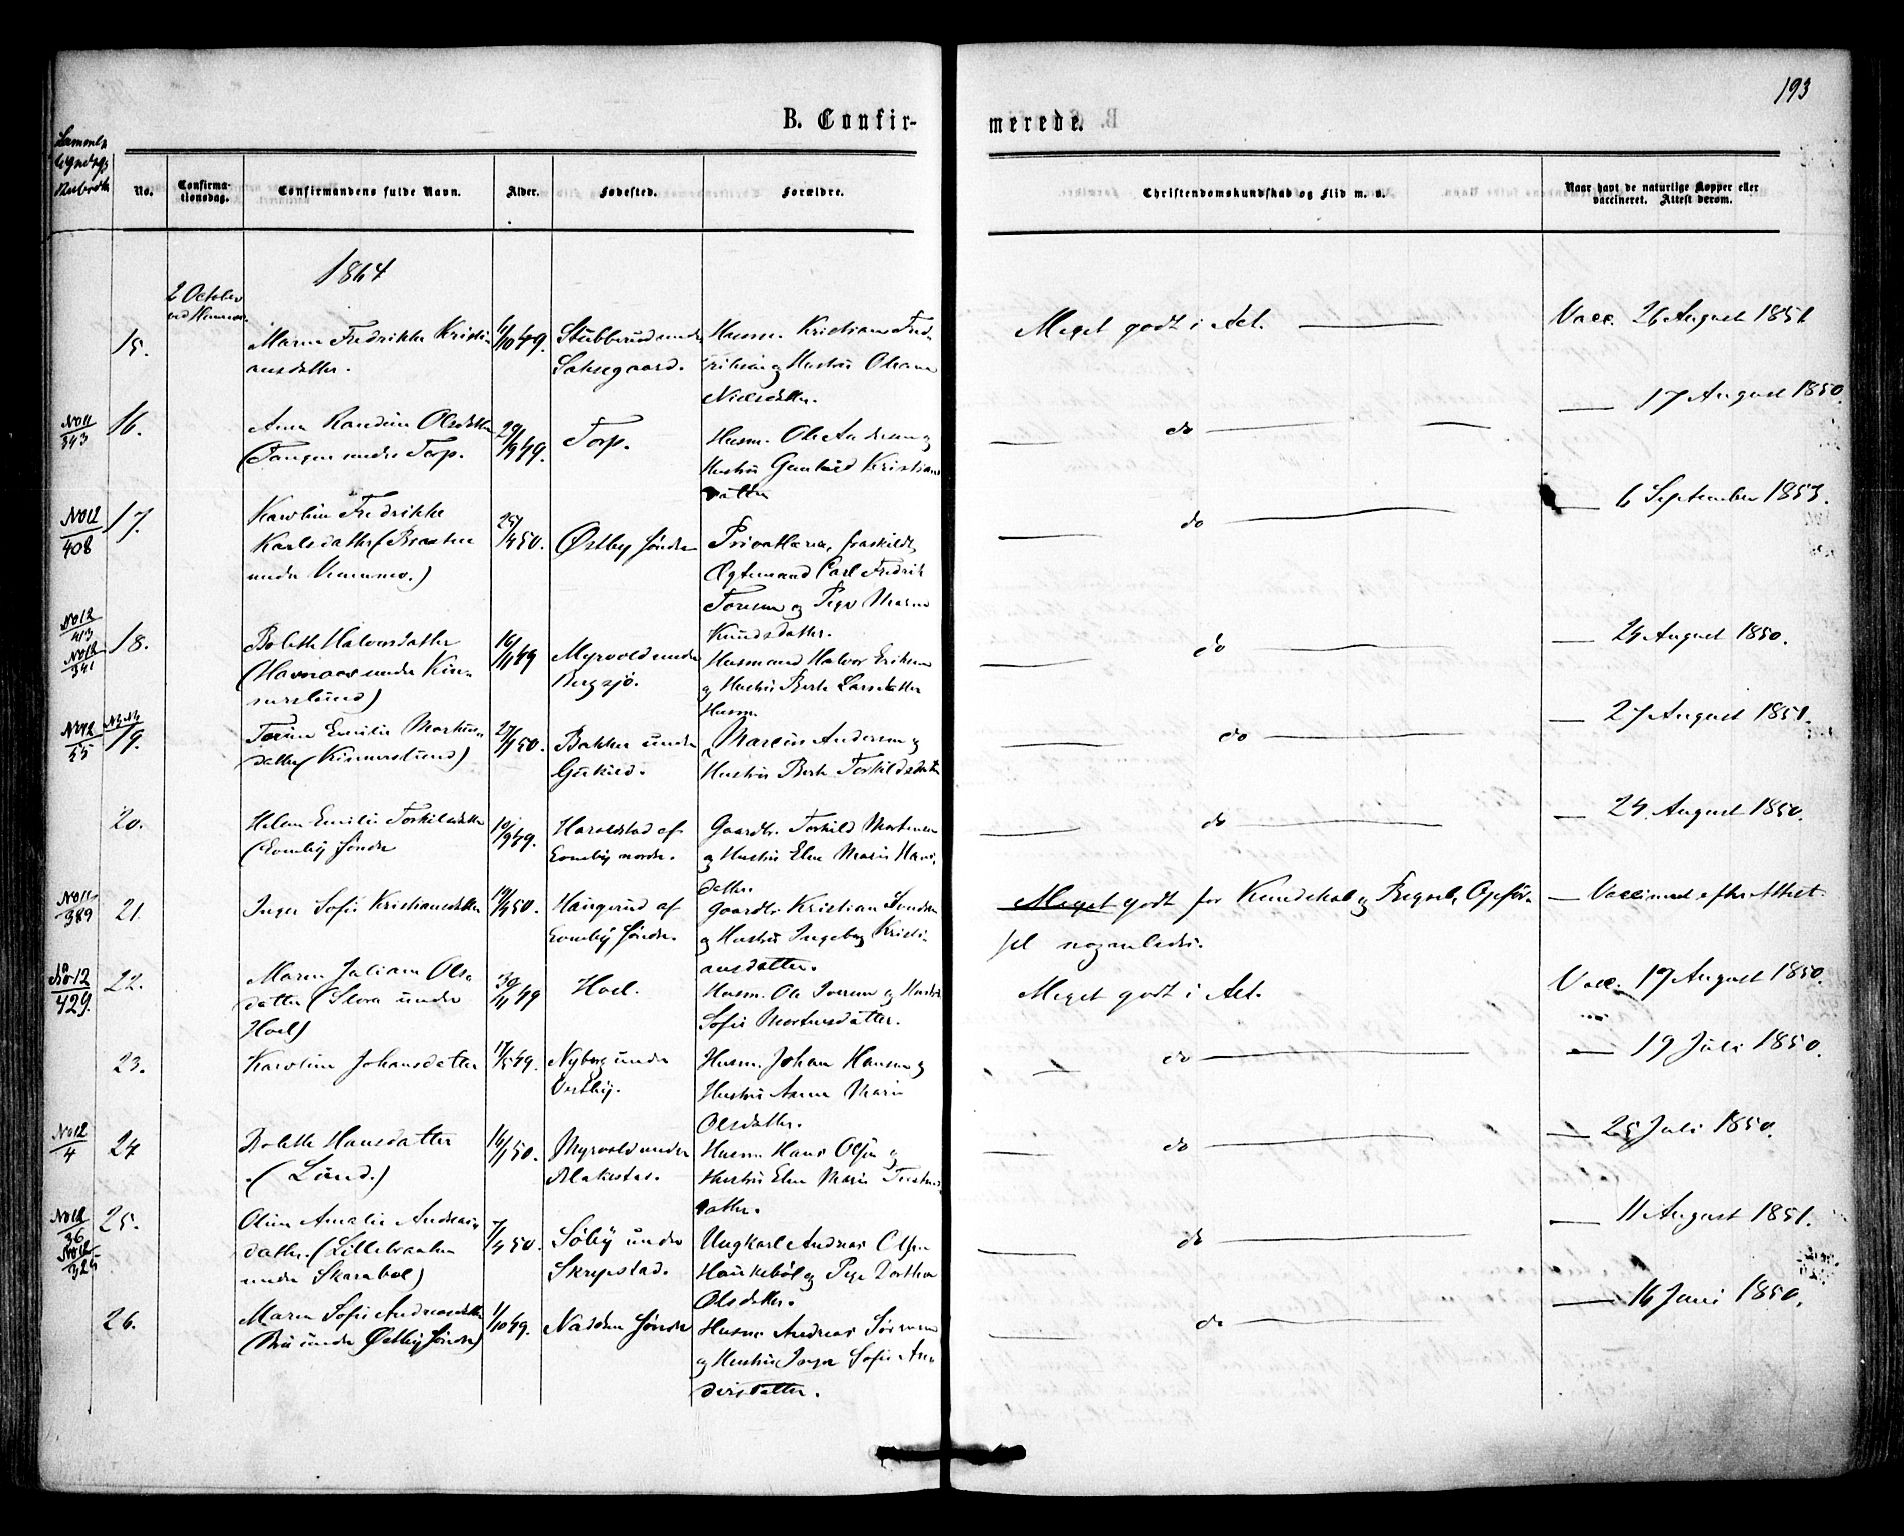 193
B. Confir-
merede.
No.
Confirma-
tionsdag.
Confirmandens fulde Navn.
Alder.
Fødested.
Forældre.
Christendomskundskab og Flid m. v.
Naar havt de naturlige Kopper eller
vaccineret. Attest derom.
1864
2 October
15.
Maren Fredrikke Kristi-
ansdatter.
1/10 49.
Stubberud under
Saksegaard.
Husm. Kristian Fred-
riksen og Hustru Oleana
Nielsdatter.
Meget godt i Alt.
Vacc. 26 August 1851
No 11
343
16.
Anne Randine Olsdatter
(Tangen under Torp.
29/9 49.
Torp.
Husm. Ole Andersen og
Hustru Gunhild Kristians
datter
do
17 August 1850.
No 12
408
17.
Karoline Fredrikke
Karlsdatter (Braaten
under
25/4 50.
Østby Søndre
fraskildt
Ægtemand Carl Fredrik
Toresen og Pige Maren
Knudsdatter.
do
6 September 1853.
No 12
413
No 12
341
18.
Bolette Halvorsdatter
(Havnaas under Kin-
nerslund)
16/11 49
Myrvold under
Bergsjø.
Husmand Halvor Eriksen
og Hustru Berte Larsdatter
do
24 August 1850.
No 12
55
19.
Torine Emilie Markus-
datter (Kinnerslund)
27/1 50.
Bakken under
Husm.
Marcus Andersen og
Hustru Berte Torkildsdatter
do
27 August 1851.
20.
Helene Emilie Torkildsdatter
(Ømby Søndre
10/9 49.
Haraldstad af
nordre.
Gaardbr. Torkild Mortensen
og Hustru Elen Marie Hans
datter.
do
24. August 1850.
No 11
389
21.
Inger Sofie Kristiansdatter
Haugerud af
Søndre.
Gaardbr. Kristian
og Hustru Ingeborg Kristi-
ansdatter.
Meget godt for Kundskab og Begreb, Opfør-
sel nogenledes.
Vaccineret efter Attest.
No 12
429.
22.
Maren Juliane Ols-
datter (Slora under
Hoel)
30/11 49
Hoel.
Husm. Ole Iversen og Hustru
Sofie Mortensdatter.
Meget godt i Alt.
Vacc. 17 August 1850.
23.
Karoline Johansdatter
17/5 49.
Nyborg under
Vestby.
Husm. Johan Hansen og
Hustru Anne Marie
Olsdatter.
do
19 Juli 1850.
No 12
4
24
Bolette Hansdatter
(Lund.)
16/1 50.
Myrvold under
Husm. Hans Olsen og
Hustru Elen Marie
datter.
do
25 Juli 1850.
No 12
36
No 12
325
25.
Oline Amalie Andreas-
datter. (Lillebraaten
under Skarabøl)
7/4 50.
Søby under
Skrepstad.
Ungkarl Andreas Olsen
Haukebøl og Pige Dorthea
Olsdatter.
do
11 August 1851.
26.
Maren Sofie Andreasdatter
(Bru under Østby Søndre)
1/10 49.
Naddum Søndre
Husm Andreas Sørensen
og Hustru Inger Sofie An-
dersdatter.
do
16 Juni 1850.